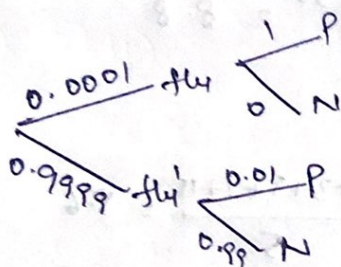 1 P
0.0001 flu
0 N
0.9999 flu' 0.01 P
0.99 N